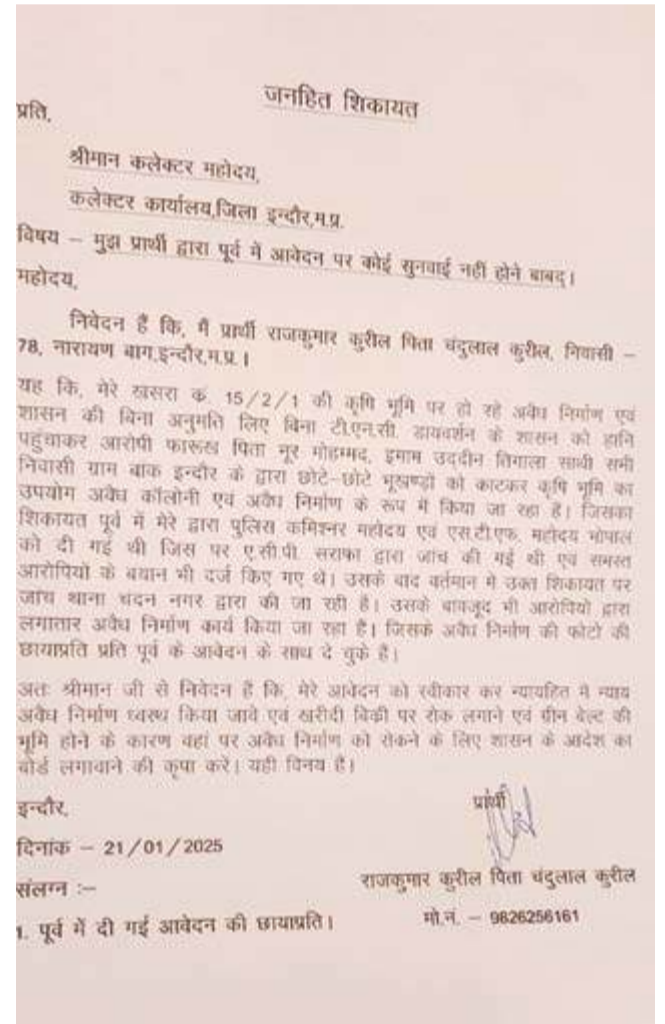 जनहित शिकायत
प्रति,
श्रीमान कलेक्टर महोदय,
कलेक्टर कार्यालय,जिला इन्दौर,म.प्र.
विषय – मुझ प्रार्थी द्वारा पूर्व में आवेदन पर कोई सुनवाई नहीं होने बाबद्।
महोदय,
निवेदन हैं कि, मैं प्रार्थी राजकुमार कुरील पिता चंदुलाल कुरील, निवासी –
78, नारायण बाग,इन्दौर,म.प्र.।
यह कि, मेरे खसरा क्र. 15/2/1 की कृषि भूमि पर हो रहे अवैध निर्माण एवं
शासन की बिना अनुमति लिए बिना टी.एन.सी. डायवर्शन के शासन को हानि
पहुंचाकर आरोपी फारूख पिता नूर मोहम्मद, इमाम उद्दीन तिगाला साथी सभी
निवासी ग्राम बांक इन्दौर के द्वारा छोटे-छोटे भूखण्डो को काटकर कृषि भूमि का
उपयोग अवैध कॉलोनी एवं अवैध निर्माण के रूप में किया जा रहा है। जिसका
शिकायत पूर्व में मेरे द्वारा पुलिस कमिश्नर महोदय एवं एस.टी.एफ. महोदय भोपाल
को दी गई थी जिस पर ए.सी.पी. सराफा द्वारा जांच की गई थी एवं समस्त
आरोपियो के बयान भी दर्ज किए गए थे। उसके बाद वर्तमान में उक्त शिकायत पर
जांच थाना चंदन नगर द्वारा की जा रही है। उसके बावजूद भी आरोपियो द्वारा
लगातार अवैध निर्माण कार्य किया जा रहा है। जिसके अवैध निर्माण की फोटो की
छायाप्रति प्रति पूर्व के आवेदन के साथ दे चुके है।
अतः श्रीमान जी से निवेदन हैं कि, मेरे आवेदन को स्वीकार कर न्यायहित में न्याय
अवैध निर्माण ध्वस्थ किया जावे एवं खरीदी बिक्री पर रोक लगाने एवं ग्रीन बेल्ट की
भूमि होने के कारण वहां पर अवैध निर्माण को रोकने के लिए शासन के आदेश का
बोर्ड लगावाने की कृपा करे। यही विनय है।
इन्दौर,
प्रार्थी
दिनांक – 21/01/2025
राजकुमार कुरील पिता चंदुलाल कुरील
संलग्न :–
मो.नं. – 9826256161
1. पूर्व में दी गई आवेदन की छायाप्रति।